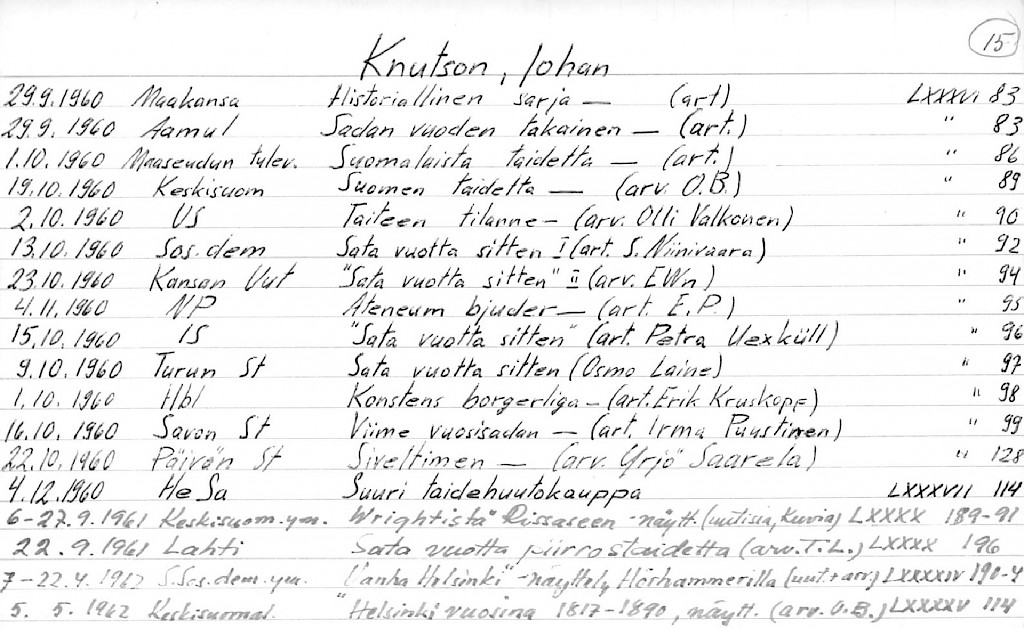 15
Knutson, Johan
29.9.1960 Maakansa Historiallinen sarja — (art) LXXXVI 83
29.9.1960 Aamul Sadan vuoden takainen — (art.) " 83
1.10.1960 Maaseudun tulev. Suomalaista taidetta — (art.) " 86
19.10.1960 Keskisuom Suomen taidetta — (arv. O.B.) " 89
2.10.1960 US Taiteen tilanne — (arv. Olli Valkonen) " 90
13.10.1960 Sos.dem Sata vuotta sitten I (art. S. Niinivaara) " 92
23.10.1960 Kansan Uut "Sata vuotta sitten" II (arv. EWn) " 94
4.11.1960 NP Ateneum bjuder — (art. E.P.) " 95
15.10.1960 IS "Sata vuotta sitten" (art. Petra Uexküll) " 96
9.10.1960 Turun St Sata vuotta sitten (Osmo Laine) " 97
1.10.1960 Hbl Konstens borgerliga — (art. Erik Kruskopf) " 98
16.10.1960 Savon St Viime vuosisadan — (art. Irma Puustinen) " 99
22.10.1960 Päivän St Siveltimen — (arv. Yrjö Saarela) " 128
4.12.1960 HeSa Suuri taidehuutokauppa LXXXVII 114
6-27.9.1961 Keskisuom. ym. Wrightistä Rissaseen -näytt. (uutisia, kuvia) LXXXX 189-91
22.9.1961 Lahti Sata vuotta piirrostaidetta (arv. T.L.) LXXXX 196
7-22.4.1962 S.Sos.dem. ym. "Vanha Helsinki" -näyttely Hörhammerilla (uut.+arv) LXXXXIV 190-4
5. 5. 1962 Keskisuomal. "Helsinki vuosina 1817-1890, näytt. (arv. O.B.) LXXXXV 114